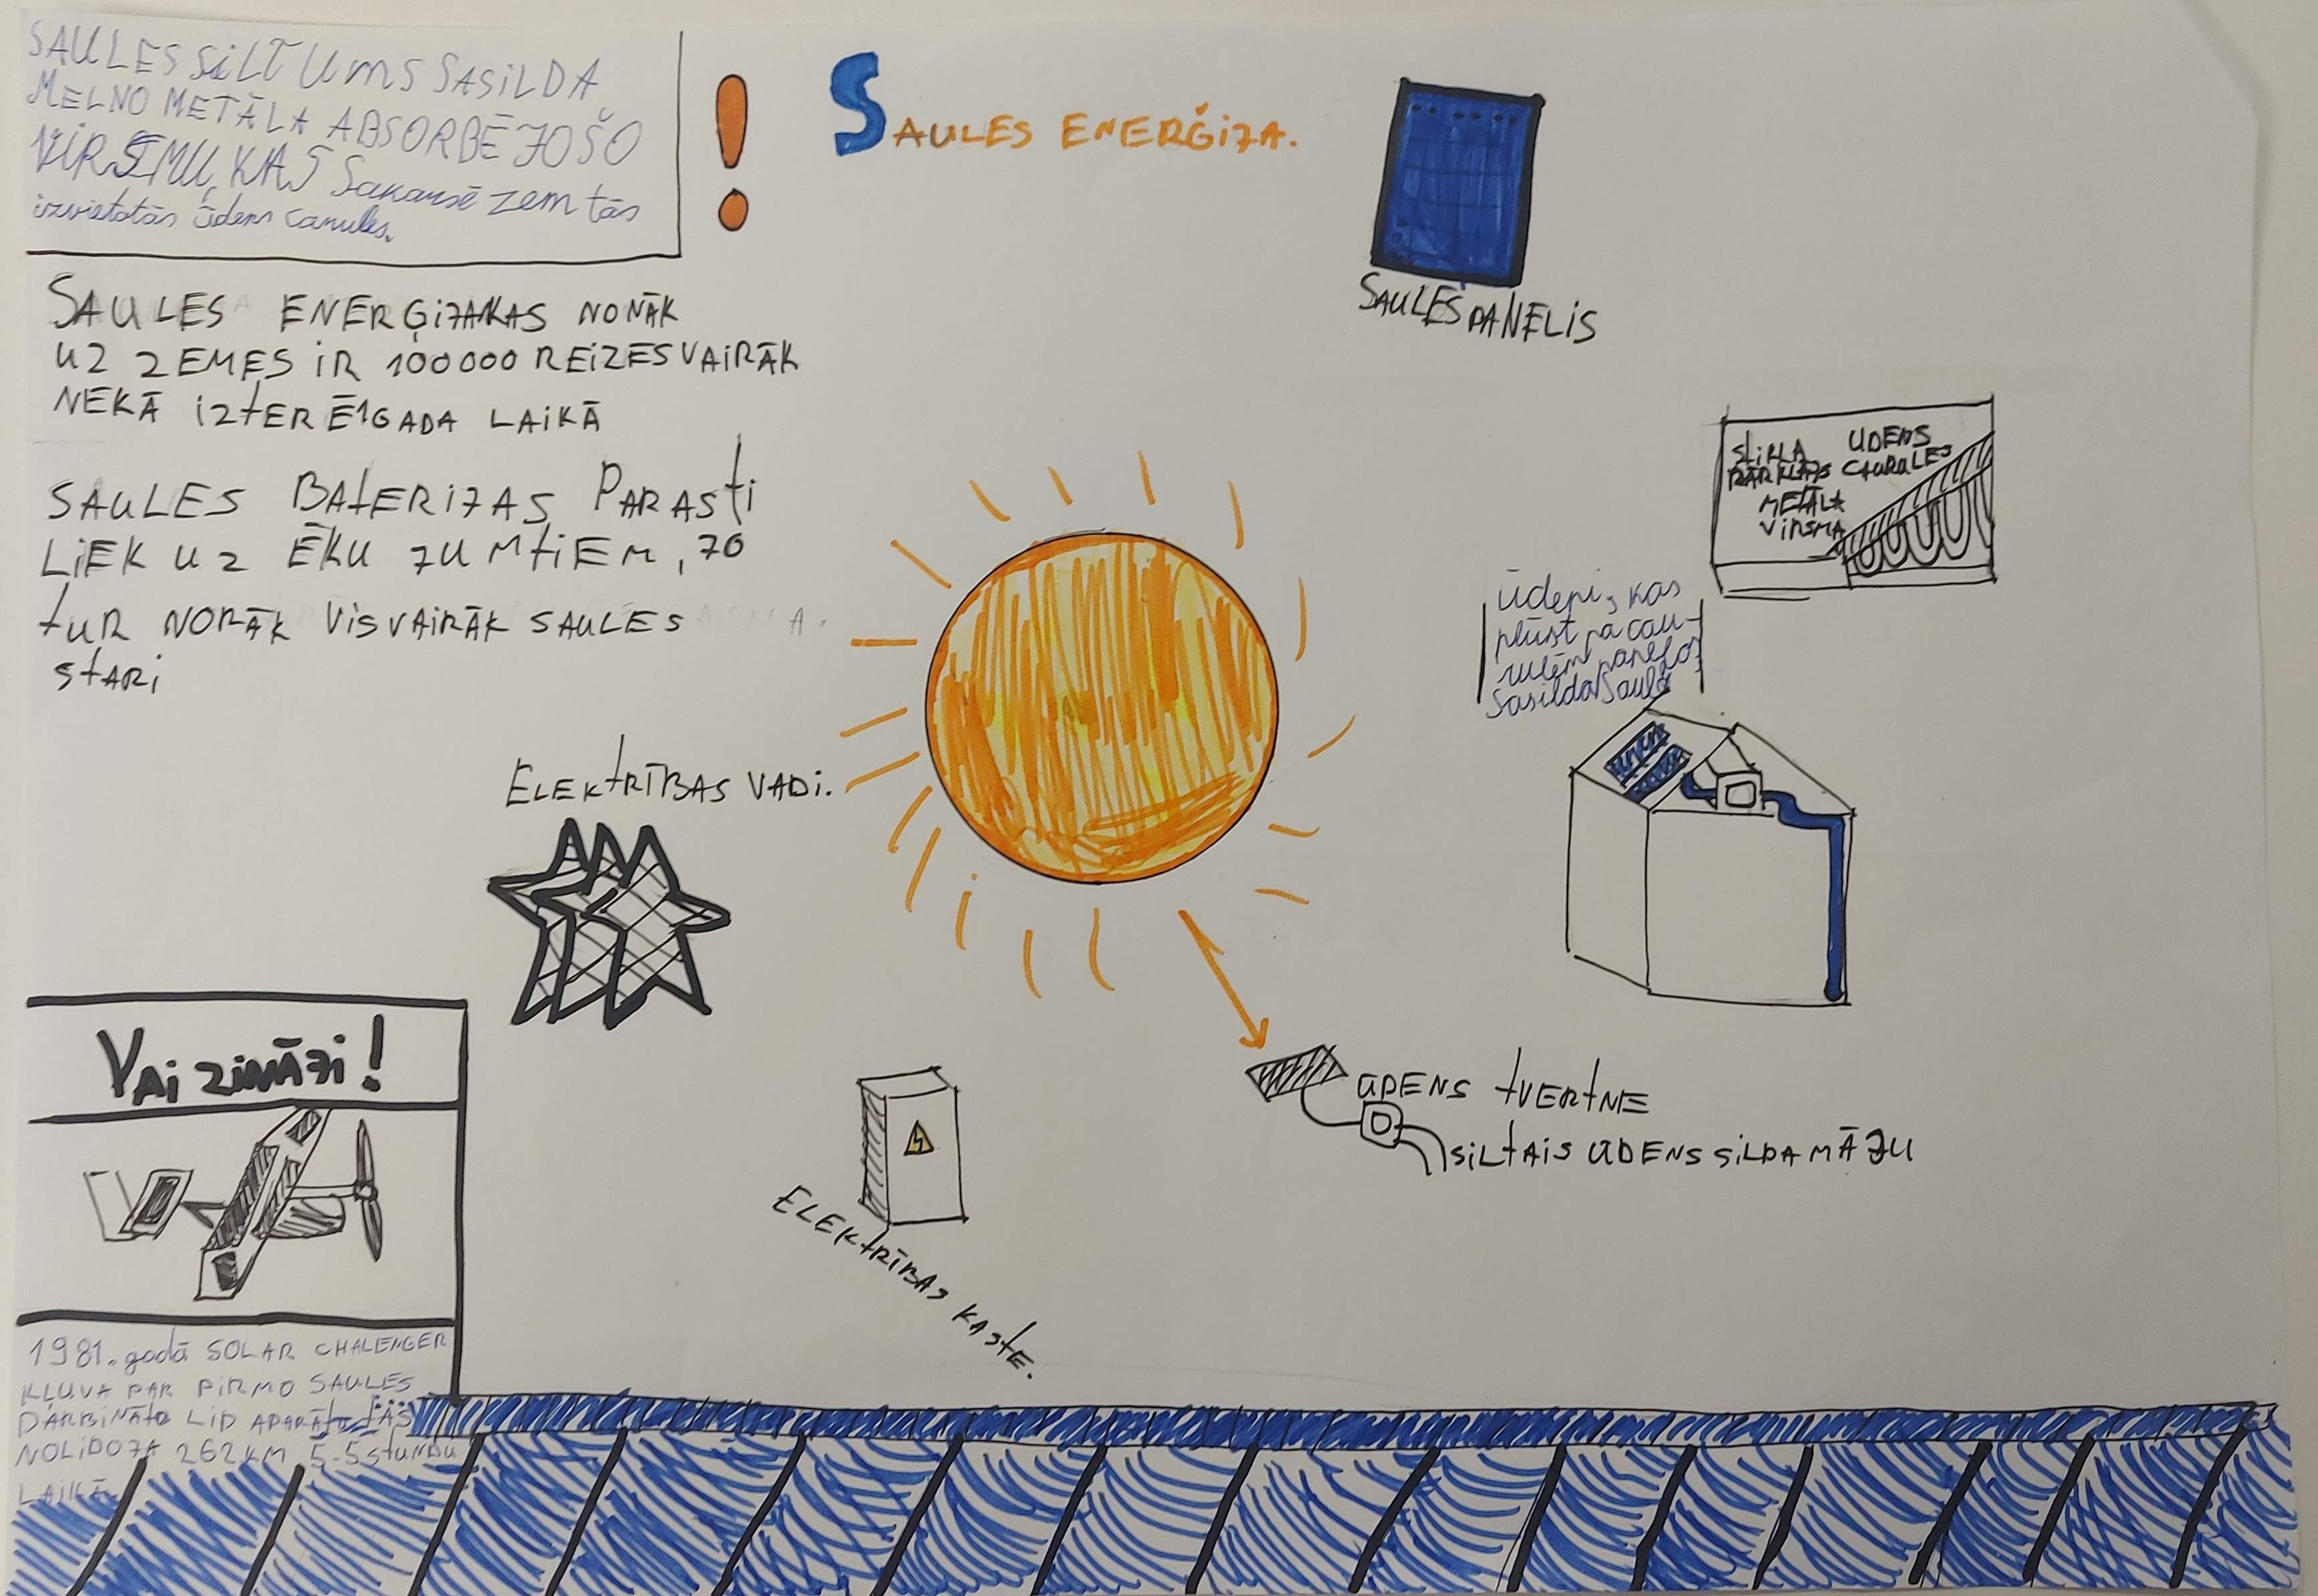 SAULES SiLTUMS SASiLDA
MELNO METĀLA ABSORBĒJOŠO
VIRSMU, KAS Sakarsē zem tās
izvietotās ūdens caurules.
SAULES ENERĢIJA.
SAULES PANELIS
SAULES ENERĢIJA KAS NONĀK
UZ ZEMES iR 100000 REiZES VAIRĀK
NEKĀ iztERĒ 1 GADA LAiKĀ
SAULES BAtERIJAS PARASti
LiEK UZ ĒKU JUMtiEM, JO
tUR NONĀK VISVAIRĀK SAULES
StARi
StiKLA PĀRKLĀJS
ŪDENS CAURULES
METĀLA VIRSMA
Ūdeni, kas
plūst pa cau-
rulēm paneļos
Sasilda Saule
ELEKtRĪBAS VADi.
VAi ZiNĀJi!
ŪDENS tVERtNE
SiLtAIS ŪDENS SiLDA MĀJU
ELEKtRĪBAS KAStE.
1981. gadā SOLAR CHALENGER
KĻUVA PAR PiRMO SAULES
DARBINĀtO LID APARĀtU tĀS
NOLIDOJA 262 KM 5-5 StUNDU
LAIKĀ